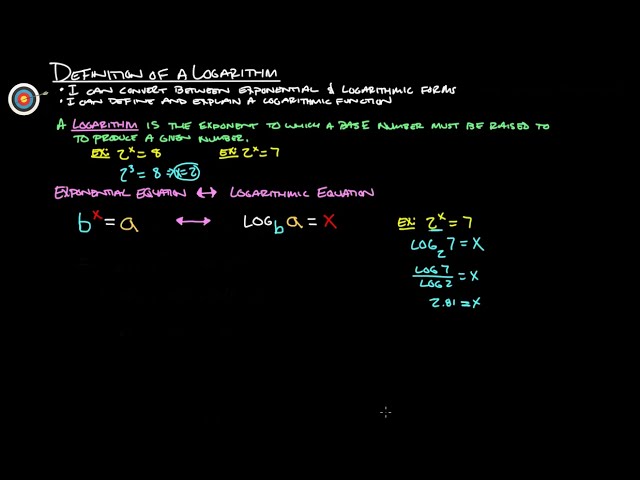 DEFINITION OF A LOGARITHM
• I CAN CONVERT BETWEEN EXPONENTIAL & LOGARITHMIC FORMS
• I CAN DEFINE AND EXPLAIN A LOGARITHMIC FUNCTION
A LOGARITHM IS THE EXPONENT TO WHICH A BASE NUMBER MUST BE RAISED TO
TO PRODUCE A GIVEN NUMBER.
EX: 2^x = 8 EX: 2^x = 7
2^3 = 8 → x=2
EXPONENTIAL EQUATION ↔ LOGARITHMIC EQUATION
b^x = a ↔ LOG_b a = x
EX: 2^x = 7
LOG_2 7 = x
LOG 7 / LOG 2 = x
2.81 = x